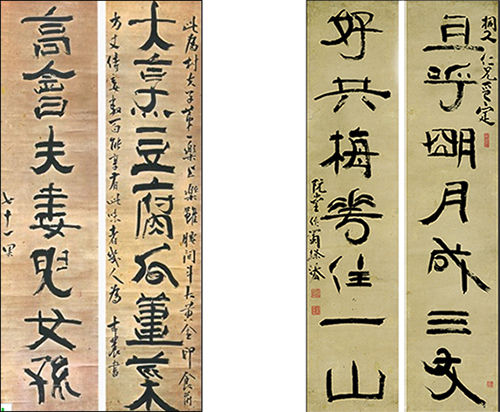 大烹豆腐瓜薑菜
此爲村夫子第一樂上樂雖腰間斗大黃金印食前
方丈侍妾數百能享有此味者幾人爲 農書
高會夫妻兒女孫
七十一果
且呼明月成三友
仁兄
好共梅花住一山
阮堂